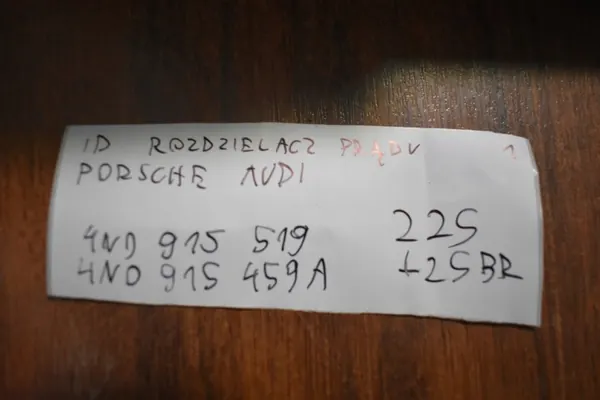 ID ROZDZIELACZ PRĄDU 1
PORSCHE AUDI
4ND 915 519 225
4ND 915 459A +25BR